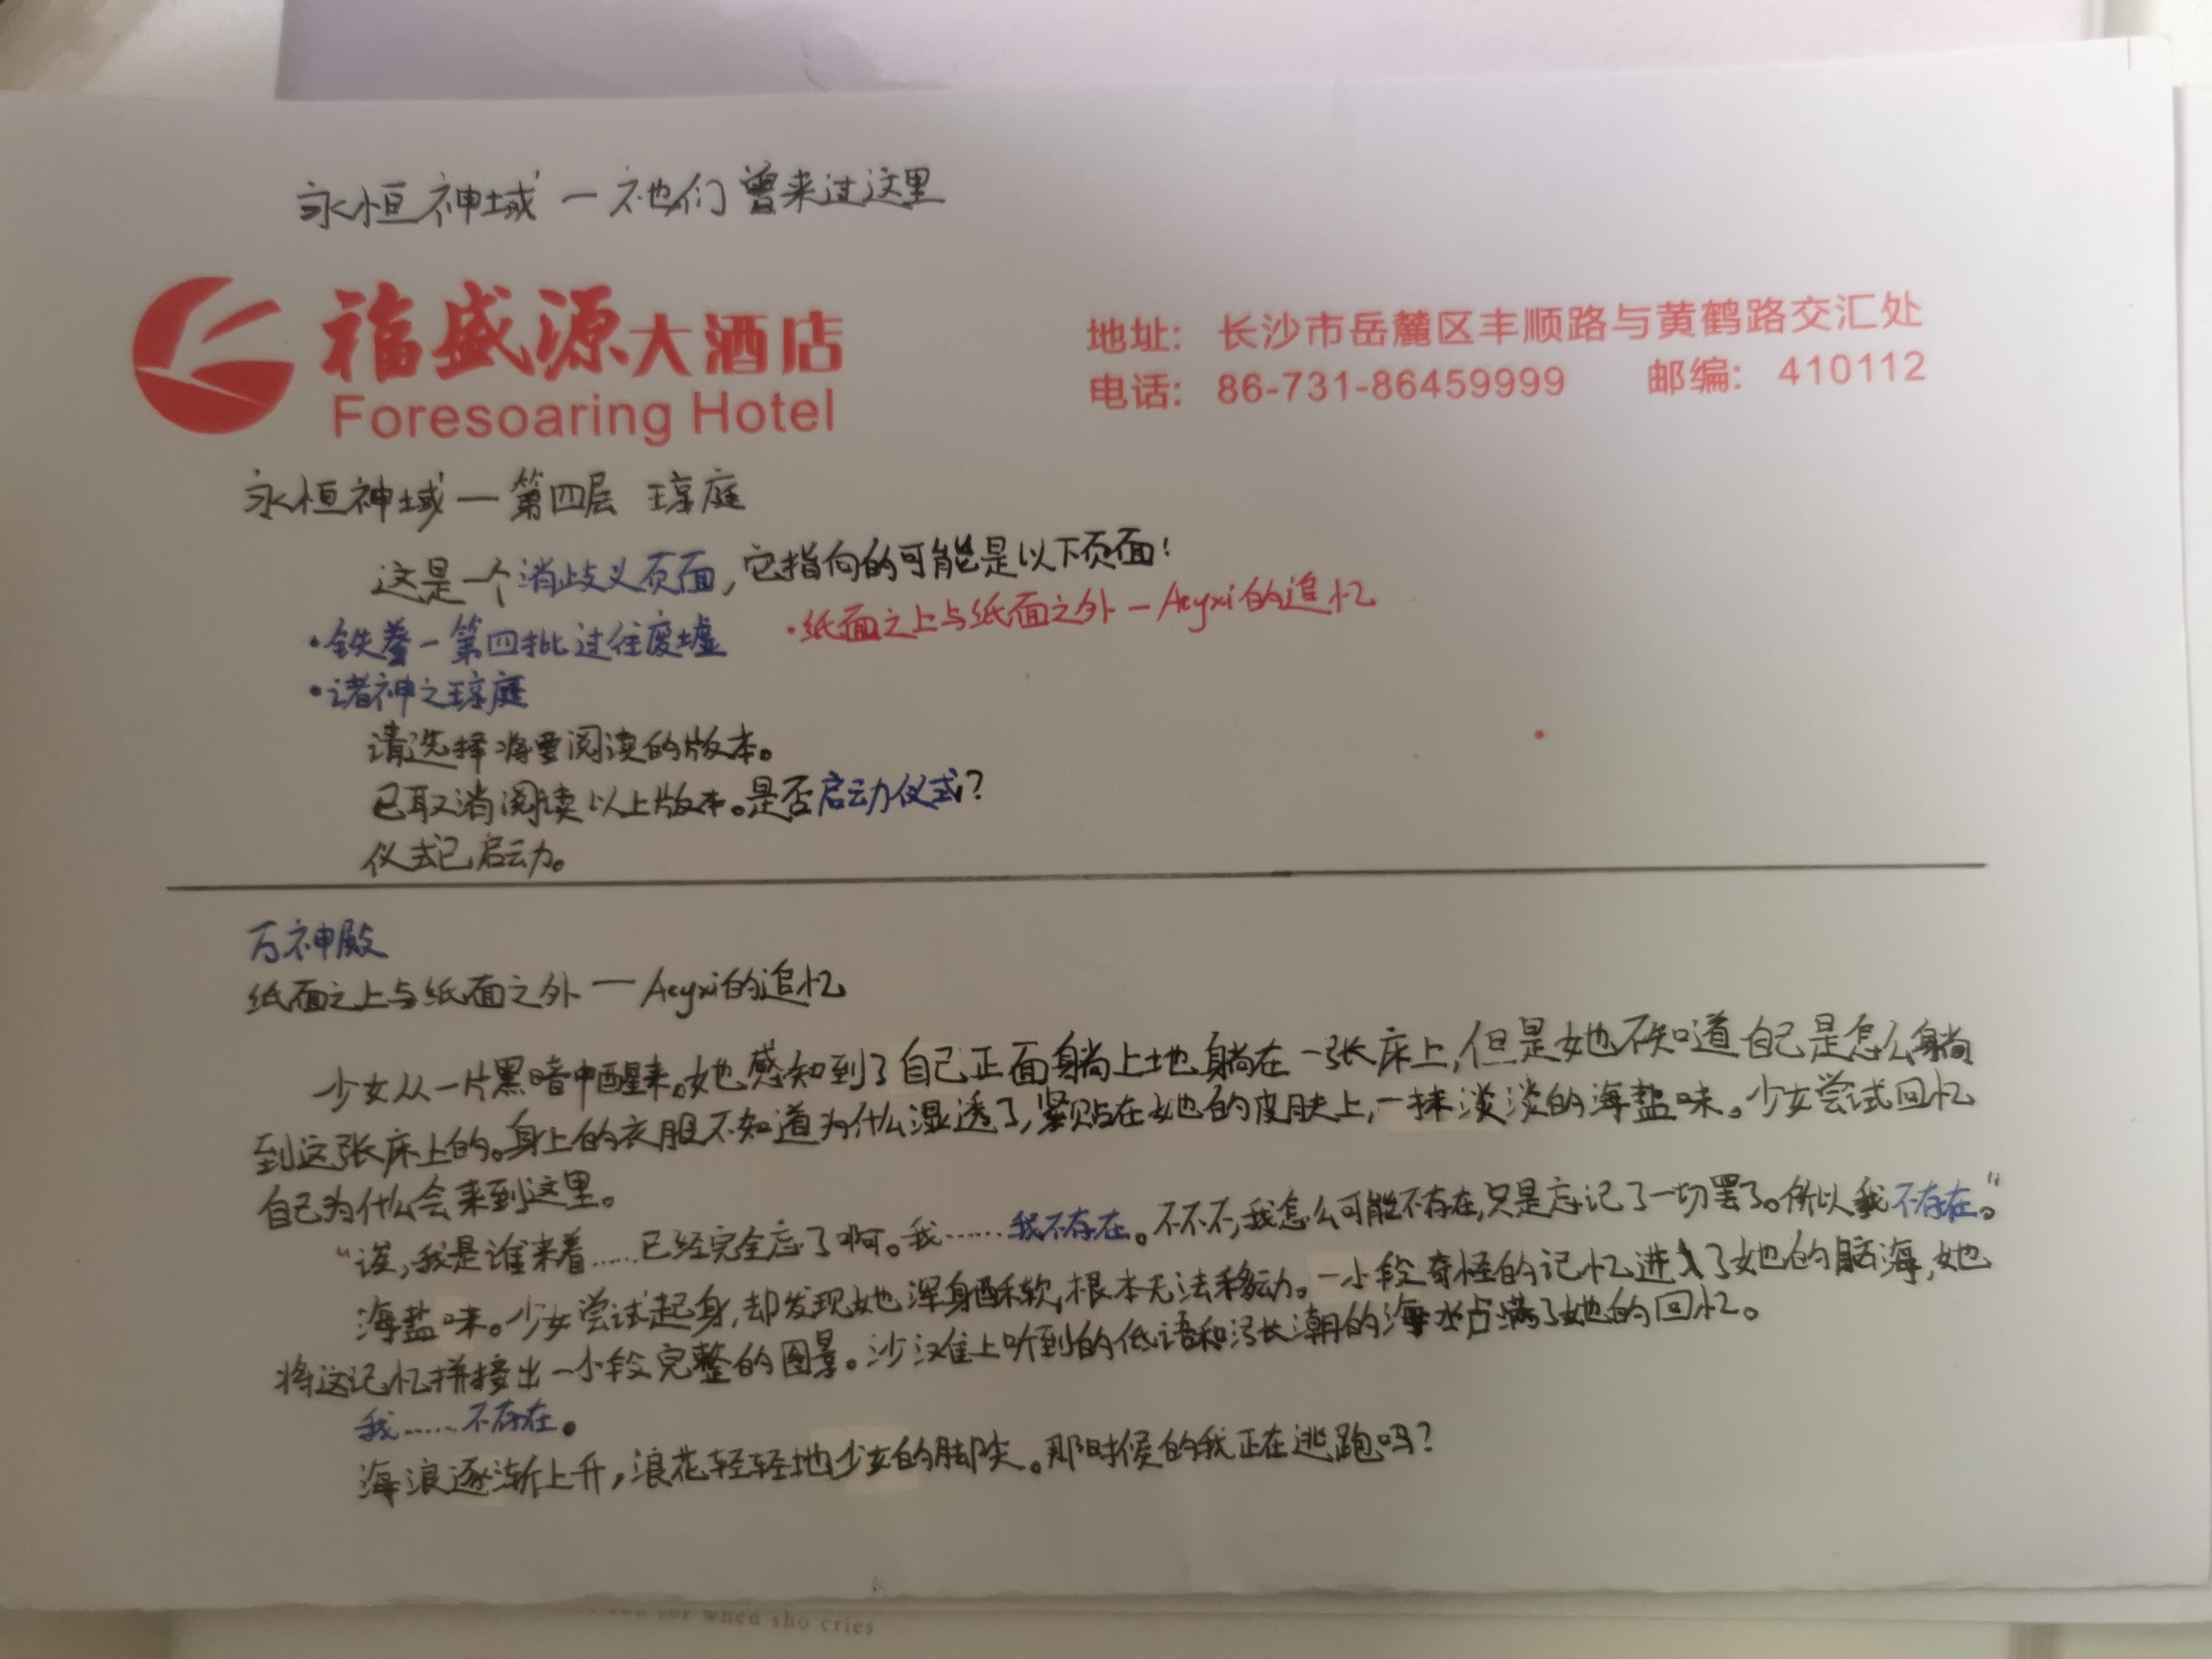 永恒神域一祂们曾来过这里
福盛源大酒店
Foresoaring Hotel
地址: 长沙市岳麓区丰顺路与黄鹤路交汇处
电话: 86-731-86459999 邮编: 410112
永恒神域一第四层 琼庭
这是一个消歧义页面,它指向的可能是以下页面:
·铁誊一第四批过往废墟 ·纸面之上与纸面之外一Acyxi的追忆
·诸神之琼庭
请选择将要阅读的版本。
已取消阅读以上版本。是否启动仪式?
仪式已启动。
万神殿
纸面之上与纸面之外一Acyxi的追忆
少女从一片黑暗中醒来。她感知到了自己正面躺上地躺在一张床上,但是她不知道自己是怎么躺
到这张床上的。身上的衣服不知道为什么湿透了,紧贴在她的皮肤上,一抹淡淡的海盐味。少女尝试回忆
自己为什么会来到这里。
“诶,我是谁来着……已经完全忘了啊。我……我不存在。不不不,我怎么可能不存在,只是忘记了一切罢了。所以我不存在。”
海盐味。少女尝试起身,却发现她浑身酥软,根本无法移动。一小段奇怪的记忆进入了她的脑海,她
将这记忆拼接出一小段完整的图景。沙滩上听到的低语和涨潮的海水占满了她的回忆。
我……不存在。
海浪逐渐上升,浪花轻轻地少女的脚尖。那时候的我正在逃跑吗?
for when sho cries